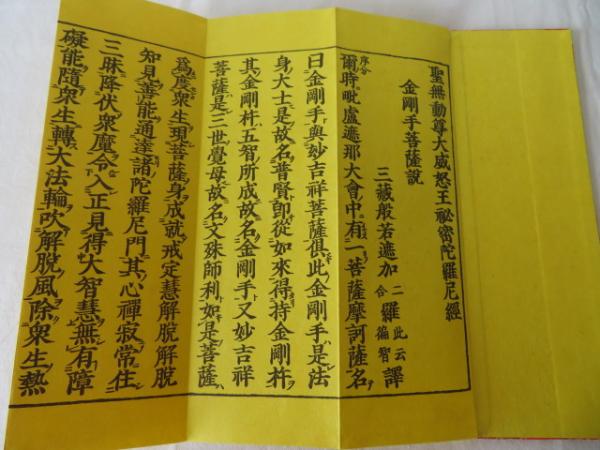 聖無動尊大威怒王祕密陀羅尼經
金剛手菩薩説
三藏般若遮加二合羅此云徧智譯
序分
爾時毗盧遮那大會中有一菩薩摩訶薩名
曰金剛手與妙吉祥菩薩俱此金剛手是法
身大士是故名普賢即從如來得持金剛杵
其金剛杵五智所成故名金剛手又妙吉祥
菩薩是三世覺母故名文殊師利如是菩薩
爲度衆生現菩薩身成就戒定慧解脱解脱
知見善能通達諸陀羅尼門其心禪寂常住
三昧降伏衆魔令入正見得大智慧無有障
礙能隨衆生轉大法輪吹解脱風除衆生熱